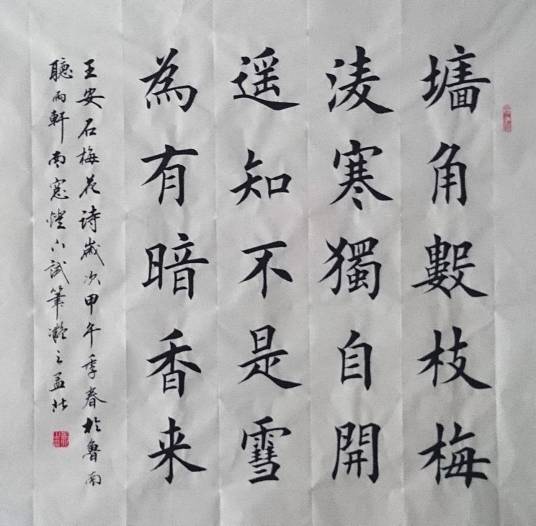 墻角數枝梅
淩寒獨自開
遥知不是雪
為有暗香来
王安石梅花詩歲次甲午季春於魯南
聽雨軒南窓燈下試筆